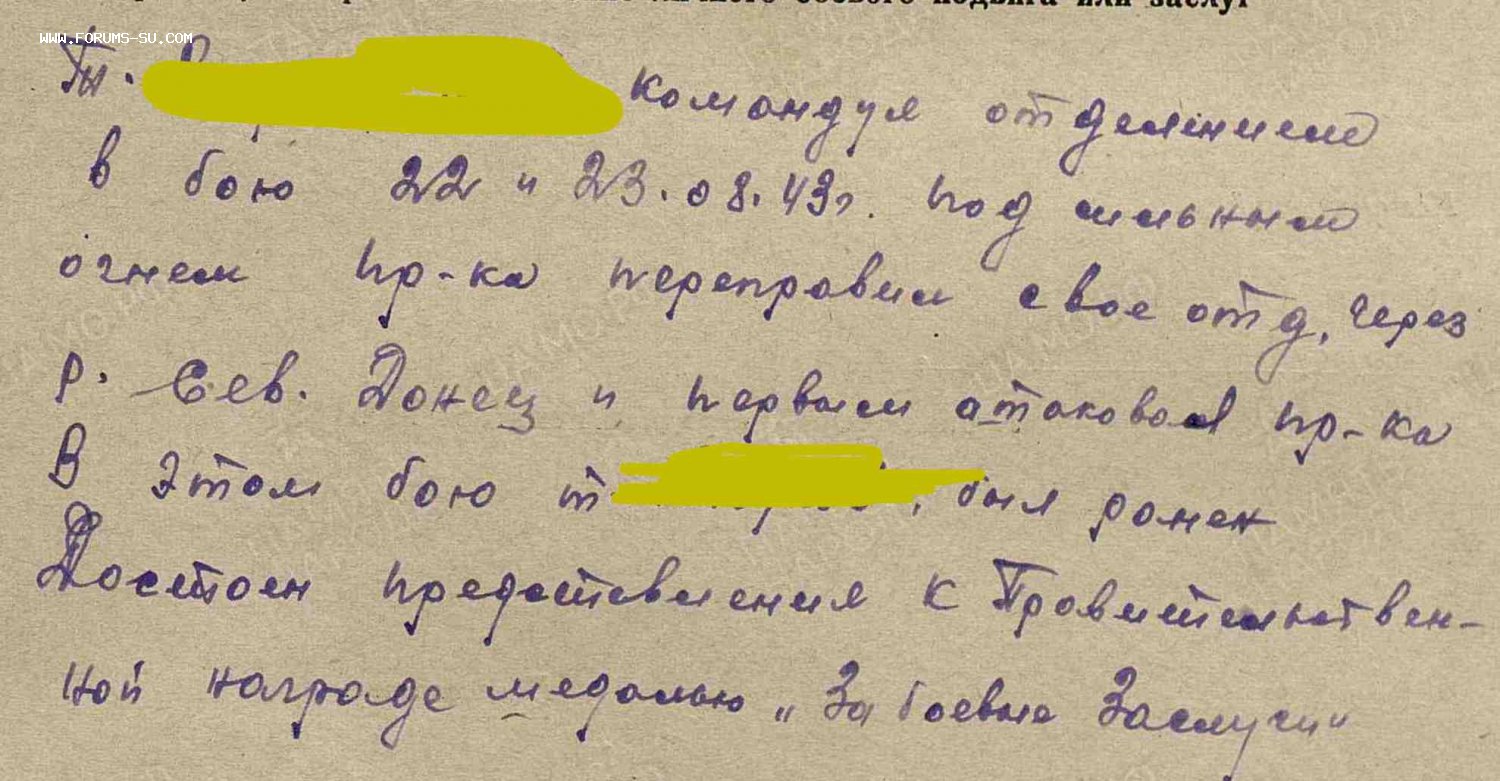 личного боевого подвига или заслуг
WWW.FORUMS-SU.COM
Т. командуя отделением
в бою 22 и 23.08.43г. под сильным
огнем пр-ка переправил свое отд. через
р. Сев. Донец и первым атаковал пр-ка
В этом бою т. был ранен
Достоин представления к Правительствен-
ной награде медалью „За боевые Заслуги"